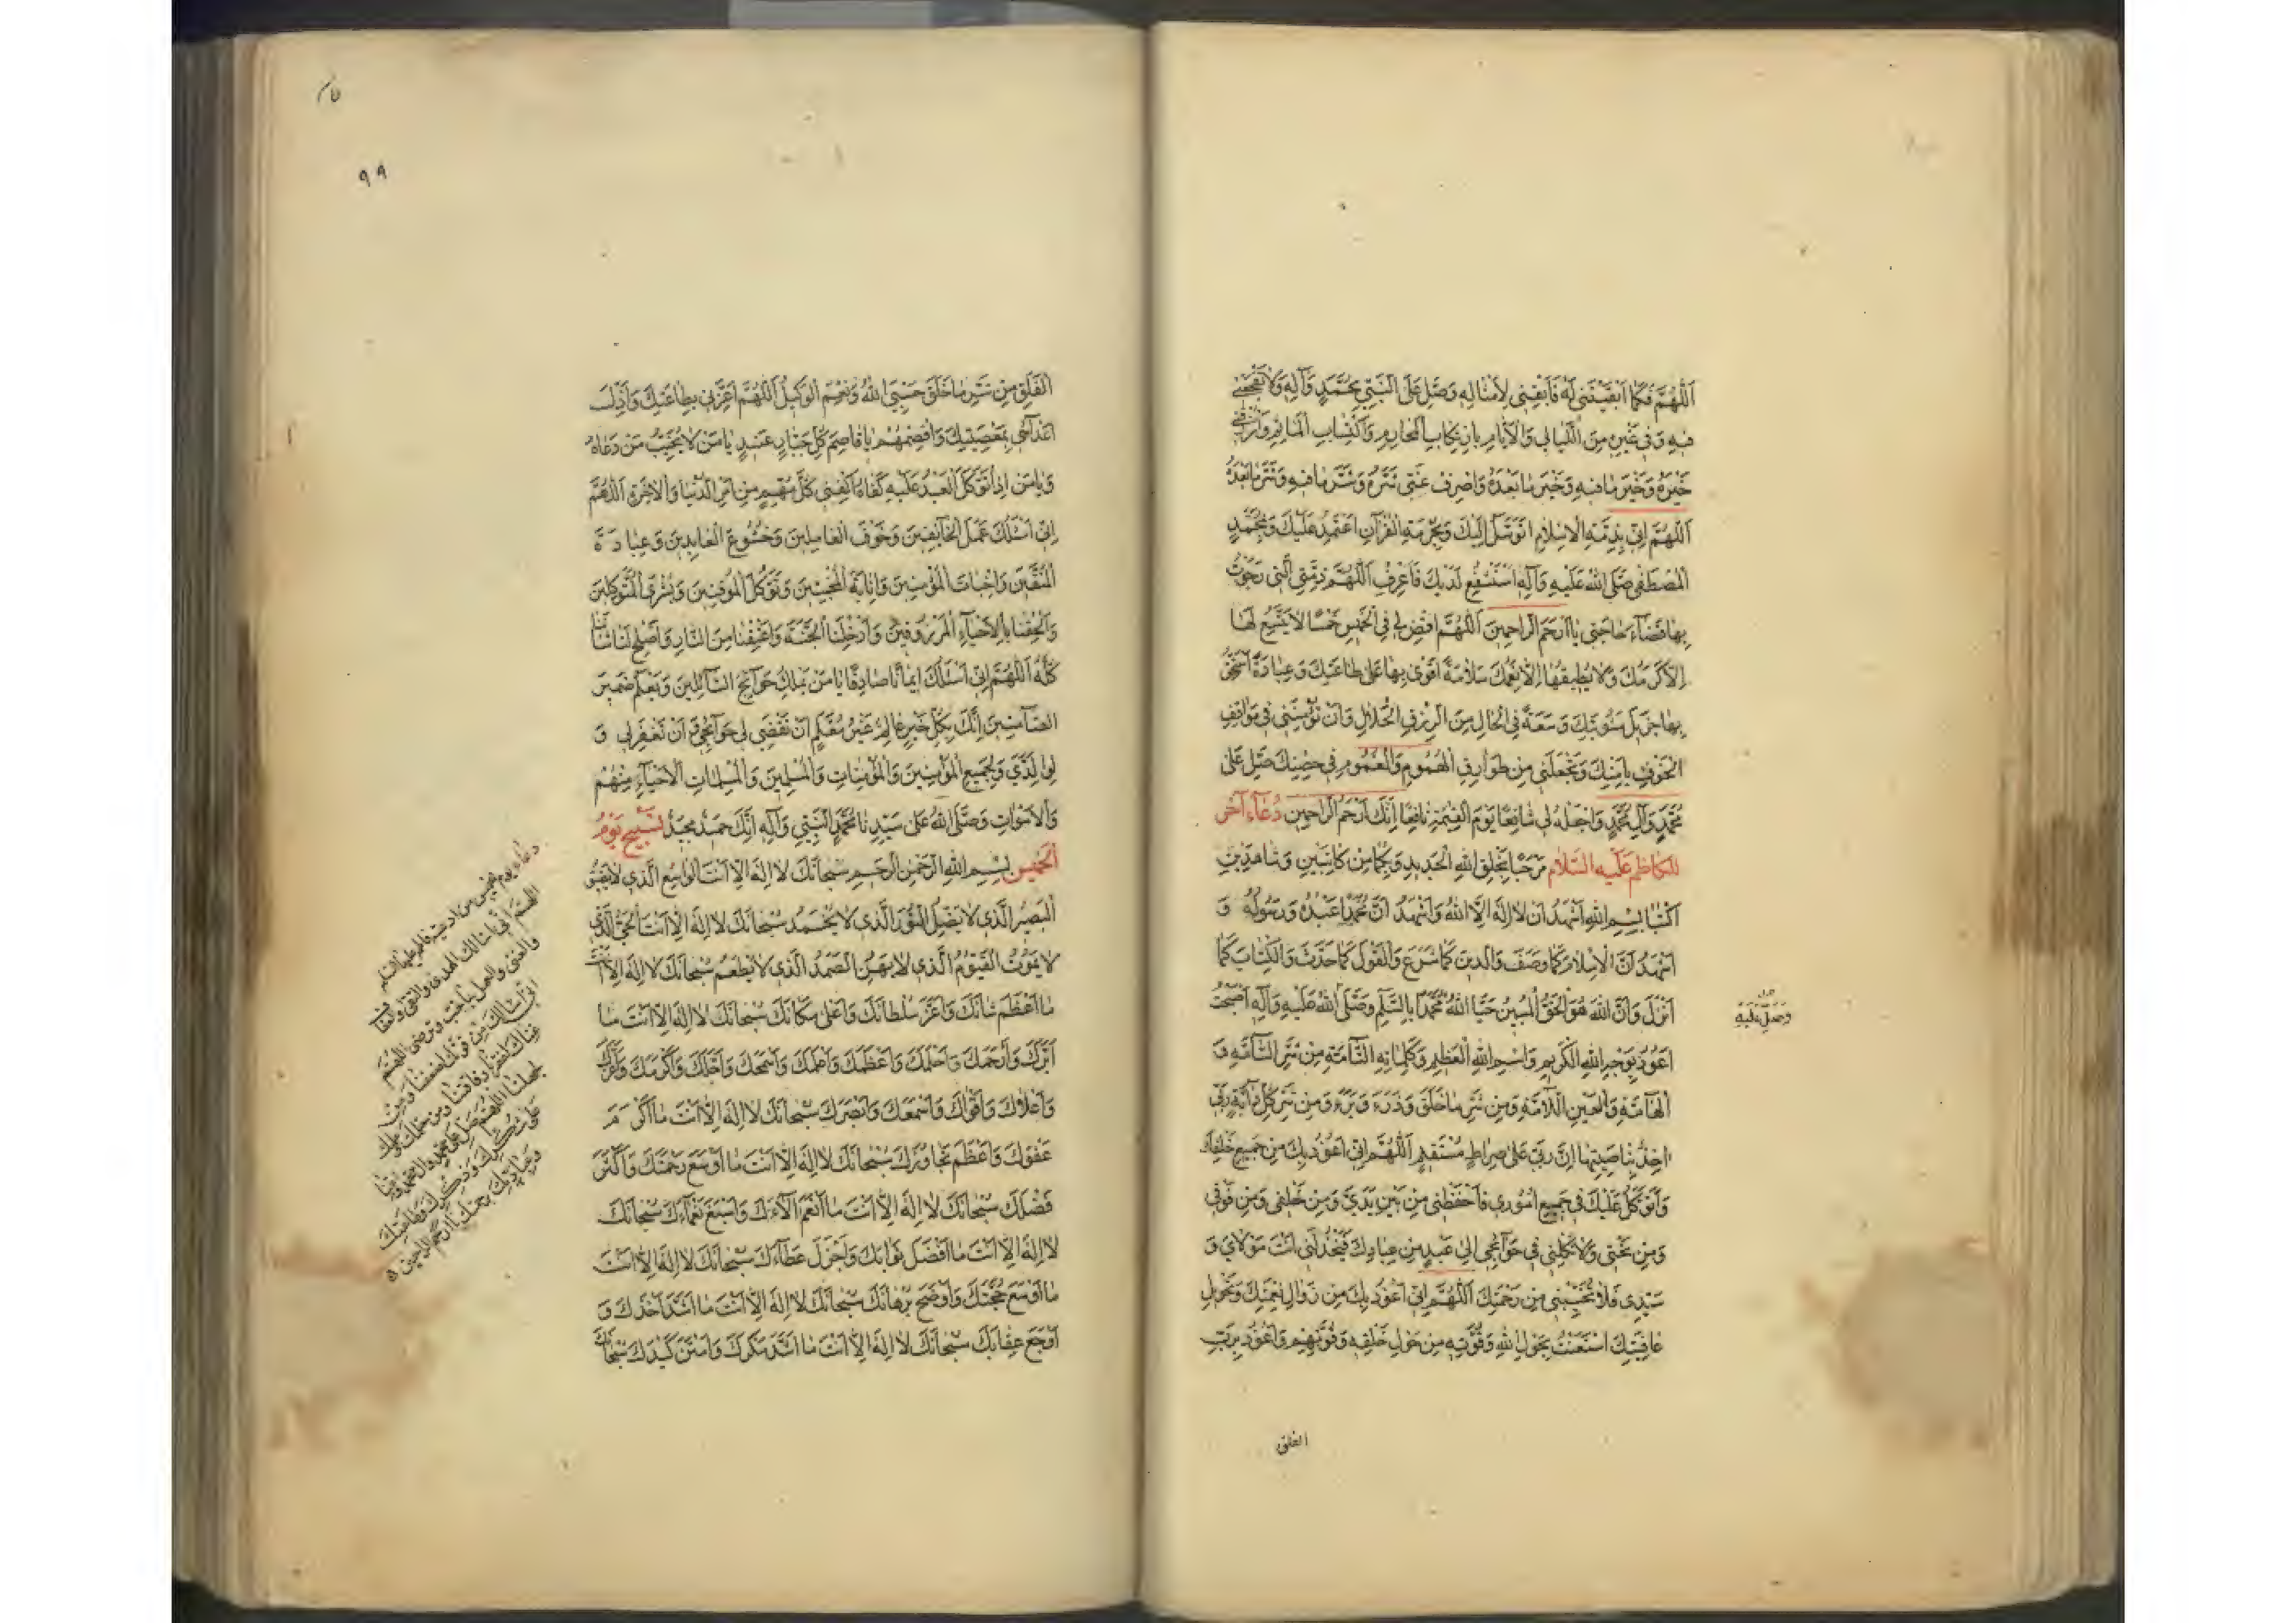 اَللّٰهُمَّ فَكَمَا اَبْقَيْتَنِي لَهُ فَاَبْقِنِي لِاَمْثَالِهِ وَصَلِّ عَلَى النَّبِيِّ مُحَمَّدٍ وَآلِهِ وَلَا تَفْجَعْنِي
فِيهِ وَفِي غَيْرِهِ مِنَ اللَّيَالِي وَالْاَيَّامِ بِارْتِكَابِ الْمَحَارِمِ وَاكْتِسَابِ الْمَآثِمِ وَارْزُقْنِي
خَيْرَهُ وَخَيْرَ مَا فِيهِ وَخَيْرَ مَا بَعْدَهُ وَاصْرِفْ عَنِّي شَرَّهُ وَشَرَّ مَا فِيهِ وَشَرَّ مَا بَعْدَهُ
اَللّٰهُمَّ اِنِّي بِذِمَّةِ الْاِسْلَامِ اَتَوَسَّلُ اِلَيْكَ وَبِحُرْمَةِ الْقُرْآنِ اَعْتَمِدُ عَلَيْكَ وَبِمُحَمَّدٍ
الْمُصْطَفَى صَلَّى اللهُ عَلَيْهِ وَآلِهِ اَسْتَشْفِعُ لَدَيْكَ فَاعْرِفِ اللّٰهُمَّ ذِمَّتِي الَّتِي رَجَوْتُ
بِهَا قَضَاءَ حَاجَتِي يَا اَرْحَمَ الرَّاحِمِينَ اَللّٰهُمَّ اقْضِ لِي فِي الْخَمِيسِ خَمْسًا لَا يَتَّسِعُ لَهَا
اِلَّا كَرَمُكَ وَلَا يُطِيقُهَا اِلَّا نِعَمُكَ سَلَامَةً اَقْوَى بِهَا عَلَى طَاعَتِكَ وَعِبَادَةً اَسْتَحِقُّ
بِهَا جَزِيلَ مَثُوبَتِكَ وَسَعَةً فِي الْحَالِ مِنَ الرِّزْقِ الْحَلَالِ وَاَنْ تُؤْمِنَنِي فِي مَوَاقِفِ
الْخَوْفِ بِاَمْنِكَ وَتَجْعَلَنِي مِنْ طَوَارِقِ الْهُمُومِ وَالْغُمُومِ فِي حِصْنِكَ صَلِّ عَلَى
مُحَمَّدٍ وَآلِ مُحَمَّدٍ وَاجْعَلْهُ لِي شَافِعًا يَوْمَ الْقِيٰمَةِ نَافِعًا اِنَّكَ اَرْحَمُ الرَّاحِمِينَ دُعَاءٌ آخَرُ
لِلْكَاظِمِ عَلَيْهِ السَّلَامُ مَرْحَبًا بِخَلْقِ اللهِ الْجَدِيدِ وَبِكُمَا مِنْ كَاتِبَيْنِ وَشَاهِدَيْنِ
اُكْتُبَا بِسْمِ اللهِ اَشْهَدُ اَنْ لَا اِلٰهَ اِلَّا اللهُ وَاَشْهَدُ اَنَّ مُحَمَّدًا عَبْدُهُ وَرَسُولُهُ وَ
اَشْهَدُ اَنَّ الْاِسْلَامَ كَمَا وَصَفَ وَالدِّينَ كَمَا شَرَعَ وَالْقَوْلَ كَمَا حَدَّثَ وَالْكِتَابَ كَمَا
اَنْزَلَ وَاَنَّ اللهَ هُوَ الْحَقُّ الْمُبِينُ حَيَّا اللهُ مُحَمَّدًا بِالسَّلَامِ وَصَلَّى اللهُ عَلَيْهِ وَآلِهِ اَصْبَحْتُ
وَصَلَّى عَلَيْهِ
اَعُوذُ بِوَجْهِ اللهِ الْكَرِيمِ وَاسْمِ اللهِ الْعَظِيمِ وَكَلِمَاتِهِ التَّامَّةِ مِنْ شَرِّ السَّامَّةِ وَ
الْهَامَّةِ وَالْعَيْنِ اللَّامَّةِ وَمِنْ شَرِّ مَا خَلَقَ وَذَرَءَ وَبَرَءَ وَمِنْ شَرِّ كُلِّ دَابَّةٍ رَبِّي
اٰخِذٌ بِنَاصِيَتِهَا اِنَّ رَبِّي عَلَى صِرَاطٍ مُسْتَقِيمٍ اَللّٰهُمَّ اِنِّي اَعُوذُ بِكَ مِنْ جَمِيعِ خَلْقِكَ
وَاَتَوَكَّلُ عَلَيْكَ فِي جَمِيعِ اُمُورِي فَاحْفَظْنِي مِنْ بَيْنِ يَدَيَّ وَمِنْ خَلْفِي وَمِنْ فَوْقِي
وَمِنْ تَحْتِي وَلَا تَكِلْنِي فِي حَوَائِجِي اِلَى عَبْدٍ مِنْ عِبَادِكَ فَيَخْذُلَنِي اَنْتَ مَوْلَايَ وَ
سَيِّدِي فَلَا تُخَيِّبْنِي مِنْ رَحْمَتِكَ اَللّٰهُمَّ اِنِّي اَعُوذُ بِكَ مِنْ زَوَالِ نِعْمَتِكَ وَتَحْوِيلِ
عَافِيَتِكَ اسْتَعَنْتُ بِحَوْلِ اللهِ وَقُوَّتِهِ مِنْ حَوْلِ خَلْقِهِ وَقُوَّتِهِمْ وَاَعُوذُ بِرَبِّ
الفلق
٩٩
الْفَلَقِ مِنْ شَرِّ مَا خَلَقَ حَسْبِيَ اللهُ وَنِعْمَ الْوَكِيلُ اَللّٰهُمَّ اَعِزَّنِي بِطَاعَتِكَ وَاَذِلَّ
اَعْدَائِي بِمَعْصِيَتِكَ وَاقْصِمْهُمْ يَا قَاصِمَ كُلِّ جَبَّارٍ عَنِيدٍ يَا مَنْ لَا يُخَيِّبُ مَنْ دَعَاهُ
وَيَا مَنْ اِذَا تَوَكَّلَ الْعَبْدُ عَلَيْهِ كَفَاهُ اكْفِنِي كُلَّ مُهِمٍّ مِنْ اَمْرِ الدُّنْيَا وَالْآخِرَةِ اَللّٰهُمَّ
اِنِّي اَسْئَلُكَ عَمَلَ الْخَائِفِينَ وَخَوْفَ الْعَامِلِينَ وَخُشُوعَ الْعَابِدِينَ وَعِبَادَةَ
الْمُتَّقِينَ وَاِخْبَاتَ الْمُؤْمِنِينَ وَاِنَابَةَ الْمُخْبِتِينَ وَتَوَكُّلَ الْمُوقِنِينَ وَبُشْرَى الْمُتَوَكِّلِينَ
وَاَلْحِقْنَا بِالْاَحْيَاءِ الْمَرْزُوقِينَ وَاَدْخِلْنَا الْجَنَّةَ وَاَعْتِقْنَا مِنَ النَّارِ وَاَصْلِحْ لَنَا شَأْنَنَا
كُلَّهُ اَللّٰهُمَّ اِنِّي اَسْئَلُكَ اِيمَانًا صَادِقًا يَا مَنْ يَمْلِكُ حَوَائِجَ السَّائِلِينَ وَيَعْلَمُ ضَمِيرَ
الصَّامِتِينَ اِنَّكَ بِكُلِّ خَيْرٍ عَالِمٌ غَيْرُ مُعَلَّمٍ اَنْ تَقْضِيَ لِي حَوَائِجِي وَاَنْ تَغْفِرَ لِي وَ
لِوَالِدَيَّ وَلِجَمِيعِ الْمُؤْمِنِينَ وَالْمُؤْمِنَاتِ وَالْمُسْلِمِينَ وَالْمُسْلِمَاتِ الْاَحْيَاءِ مِنْهُمْ
وَالْاَمْوَاتِ وَصَلَّى اللهُ عَلَى سَيِّدِنَا مُحَمَّدٍ النَّبِيِّ وَآلِهِ اِنَّكَ حَمِيدٌ مَجِيدٌ تَسْبِيحُ يَوْمِ
الْخَمِيسِ بِسْمِ اللهِ الرَّحْمٰنِ الرَّحِيمِ سُبْحَانَكَ لَا اِلٰهَ اِلَّا اَنْتَ الْوَاسِعُ الَّذِي لَا يَضِيقُ
الْبَصِيرُ الَّذِي لَا يَضِلُّ النُّورُ الَّذِي لَا يَخْمَدُ سُبْحَانَكَ لَا اِلٰهَ اِلَّا اَنْتَ الْحَيُّ الَّذِي
لَا يَمُوتُ الْقَيُّومُ الَّذِي لَا يَهِنُ الصَّمَدُ الَّذِي لَا يُطْعَمُ سُبْحَانَكَ لَا اِلٰهَ اِلَّا اَنْتَ
مَا اَعْظَمَ شَانَكَ وَاَعَزَّ سُلْطَانَكَ وَاَعْلَى مَكَانَكَ سُبْحَانَكَ لَا اِلٰهَ اِلَّا اَنْتَ مَا
اَبَرَّكَ وَاَرْحَمَكَ وَاَحْلَمَكَ وَاَعْظَمَكَ وَاَعْلَمَكَ وَاَسْمَحَكَ وَاَجَلَّكَ وَاَكْرَمَكَ وَاَعَزَّكَ
وَاَعْلَاكَ وَاَقْوَاكَ وَاَسْمَعَكَ وَاَبْصَرَكَ سُبْحَانَكَ لَا اِلٰهَ اِلَّا اَنْتَ مَا اَكْرَمَ
عَفْوَكَ وَاَعْظَمَ تَجَاوُزَكَ سُبْحَانَكَ لَا اِلٰهَ اِلَّا اَنْتَ مَا اَوْسَعَ رَحْمَتَكَ وَاَكْثَرَ
فَضْلَكَ سُبْحَانَكَ لَا اِلٰهَ اِلَّا اَنْتَ مَا اَنْعَمَ آلَاءَكَ وَاَسْبَغَ نَعْمَاءَكَ سُبْحَانَكَ
لَا اِلٰهَ اِلَّا اَنْتَ مَا اَفْضَلَ ثَوَابَكَ وَاَجْزَلَ عَطَاءَكَ سُبْحَانَكَ لَا اِلٰهَ اِلَّا اَنْتَ
مَا اَوْسَعَ حُجَّتَكَ وَاَوْضَحَ بُرْهَانَكَ سُبْحَانَكَ لَا اِلٰهَ اِلَّا اَنْتَ مَا اَشَدَّ اَخْذَكَ وَ
اَوْجَعَ عِقَابَكَ سُبْحَانَكَ لَا اِلٰهَ اِلَّا اَنْتَ مَا اَشَدَّ مَكْرَكَ وَاَمْتَنَ كَيْدَكَ سُبْحَانَكَ
دعاء يوم خميس من ادعية فاطمة عليها السلم
اللهم اني اسالك الهدى والتقى والعفاف
والغنى والعمل بما تحب وترضى اللهم
اني اسالك من قوتك لضعفنا ومن
غناك لفقرنا وفاقتنا ومن حلمك وعلمك
لجهلنا اللهم صل على محمد وال محمد واعنا
على شكرك وذكرك وطاعتك
وعبادتك برحمتك يا ارحم الراحمين